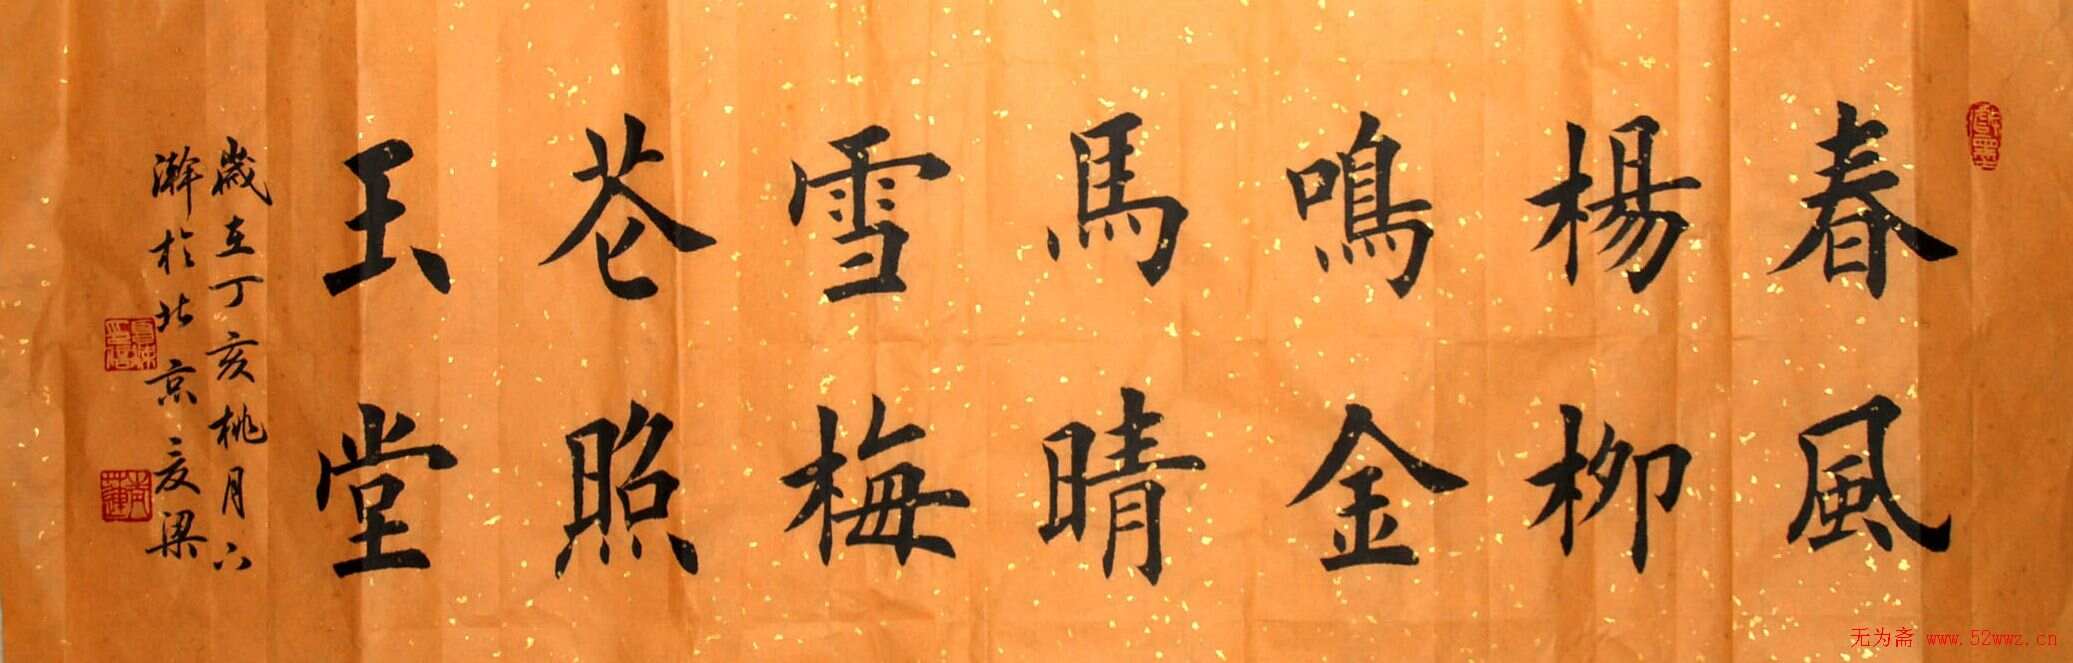 春風
楊柳
鳴金
馬晴
雪梅
苍照
玉堂
歲在丁亥桃月六
瀚於北京夏梁
无为斋 www.52wwz.cn